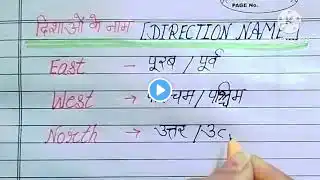 PAGE No.
दिशाओं के नाम [DIRECTION NAME]
East - पूरब / पूर्व
West → / पश्चिम
North → उत्तर /